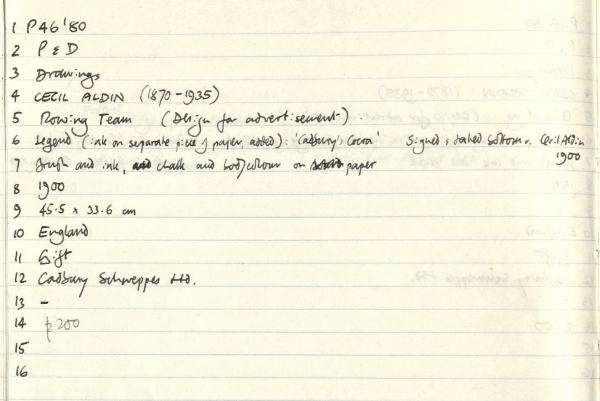 1 P46'80
2 P & D
3 Drawings
4 CECIL ALDIN (1870-1935)
5 Rowing Team (Design for advertisement).
6 Legend (ink on separate piece of paper, added): 'Cadbury Cocoa' Signed & dated bottom r. Cecil Aldin
1900
7 Brush and ink, chalk and bodycolour on paper
8 1900
9 45.5 x 33.6 cm
10 England
11 Gift
12 Cadbury Schweppes Ltd.
13 -
14 £200
15
16